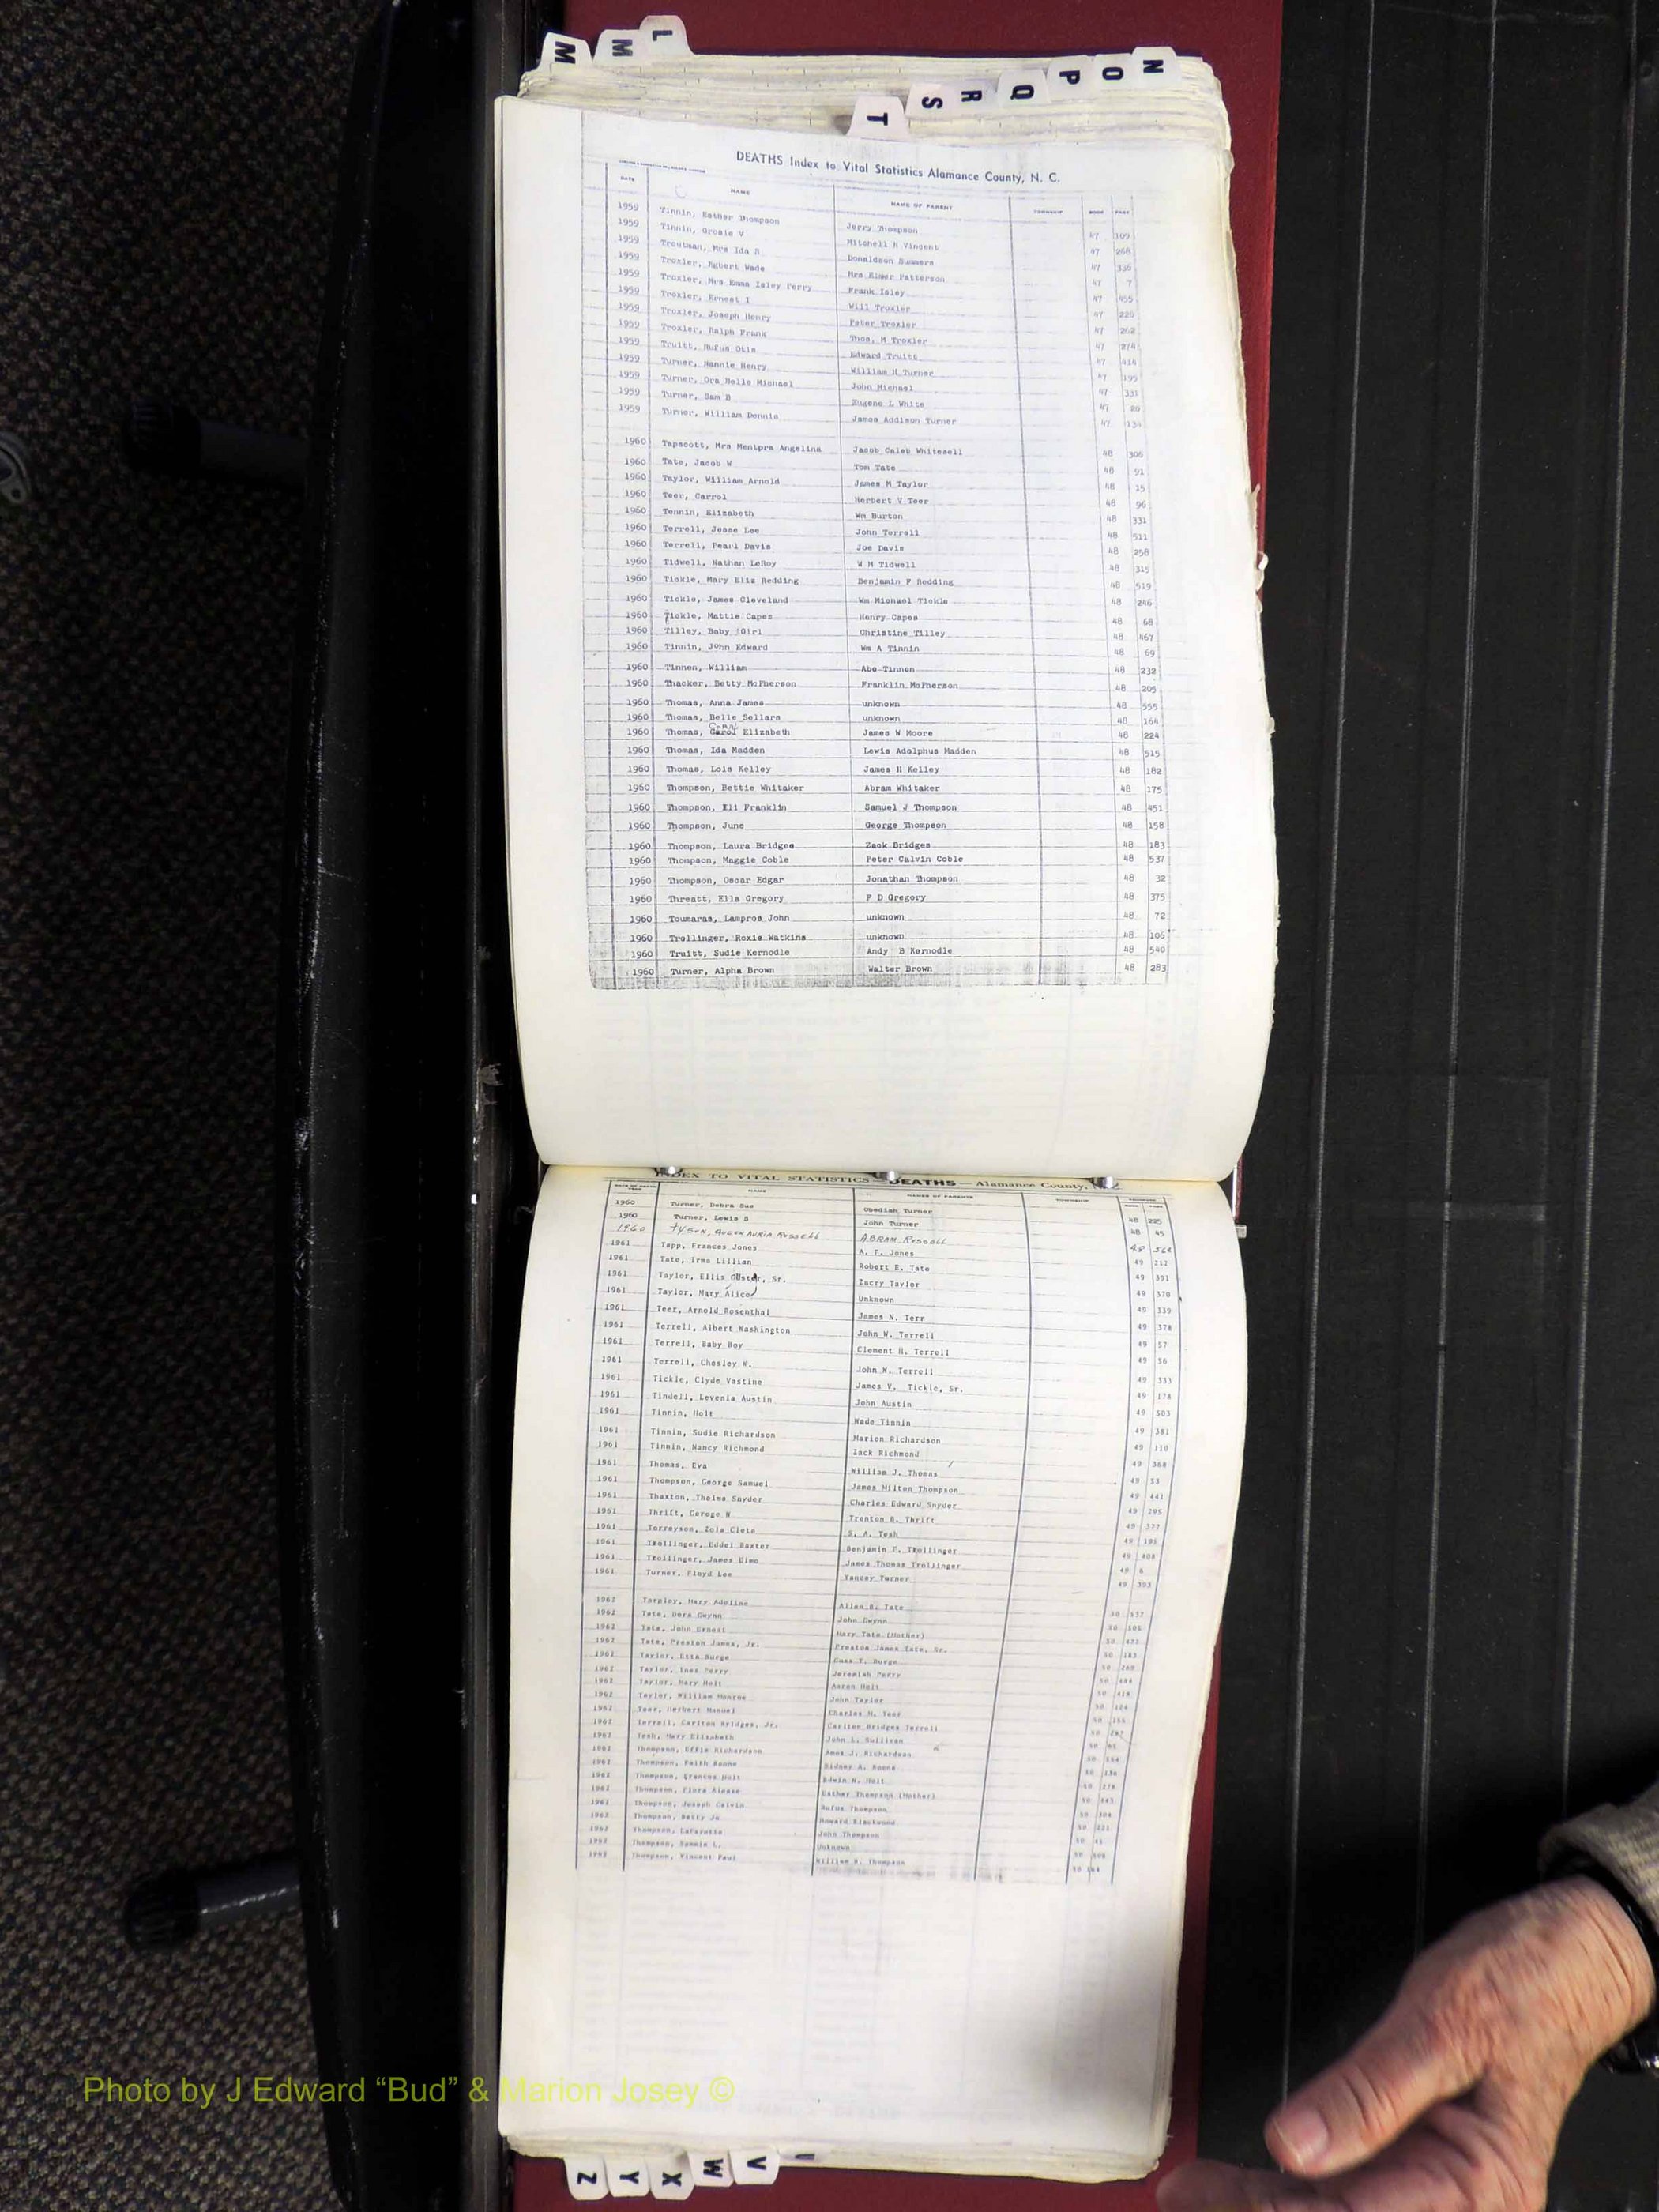 L
M
M
N
O
P
Q
R
S
T
DEATHS Index to Vital Statistics Alamance County, N. C.
DATE NAME NAME OF PARENT TOWNSHIP BOOK PAGE
1959 Tinnin, Esther Thompson Jerry Thompson 47 109
1959 Tinnin, Grosie V Mitchell N Vincent 47 268
1959 Troutman, Mrs Ida S Donaldson Summers 47 336
1959 Troxler, Egbert Wade Mrs Elmer Patterson 47 7
1959 Troxler, Mrs Emma Isley Perry Frank Isley 47 455
1959 Troxler, Ernest I Will Troxler 47 220
1959 Troxler, Joseph Henry Peter Troxler 47 262
1959 Troxler, Ralph Frank Thos. M Troxler 47 274
1959 Truitt, Rufus Otis Edward Truitt 47 414
1959 Turner, Nannie Henry William H Turner 47 195
1959 Turner, Ora Belle Michael John Michael 47 331
1959 Turner, Sam B Eugene L White 47 20
1959 Turner, William Dennis James Addison Turner 47 134
1960 Tapscott, Mrs Mentpra Angelina Jacob Caleb Whitesell 48 306
1960 Tate, Jacob W Tom Tate 48 91
1960 Taylor, William Arnold James M Taylor 48 15
1960 Teer, Carrol Herbert V Teer 48 96
1960 Tennin, Elizabeth Wm Burton 48 331
1960 Terrell, Jesse Lee John Terrell 48 511
1960 Terrell, Pearl Davis Joe Davis 48 258
1960 Tidwell, Nathan LeRoy W M Tidwell 48 315
1960 Tickle, Mary Eliz Redding Benjamin F Redding 48 519
1960 Tickle, James Cleveland Wm Michael Tickle 48 246
1960 Tickle, Mattie Capes Henry Capes 48 68
1960 Tilley, Baby Girl Christine Tilley 48 467
1960 Tinnin, John Edward Wm A Tinnin 48 69
1960 Tinnen, William Abe Tinnen 48 232
1960 Thacker, Betty McPherson Franklin McPherson 48 205
1960 Thomas, Anna James unknown 48 555
1960 Thomas, Belle Sellars unknown 48 164
1960 Thomas, Carol Elizabeth James W Moore 48 224
1960 Thomas, Ida Madden Lewis Adolphus Madden 48 515
1960 Thomas, Lois Kelley James H Kelley 48 182
1960 Thompson, Bettie Whitaker Abram Whitaker 48 175
1960 Ehompson, Eli Franklin Samuel J Thompson 48 451
1960 Thompson, June George Thompson 48 158
1960 Thompson, Laura Bridges Zack Bridges 48 183
1960 Thompson, Maggie Coble Peter Calvin Coble 48 537
1960 Thompson, Oscar Edgar Jonathan Thompson 48 32
1960 Threatt, Ella Gregory F D Gregory 48 375
1960 Toumaras, Lampros John unknown 48 72
1960 Trollinger, Roxie Watkins unknown 48 106
1960 Truitt, Sudie Kernodle Andy B Kernodle 48 540
1960 Turner, Alpha Brown Walter Brown 48 283
INDEX TO VITAL STATISTICS — DEATHS — Alamance County,
NAME NAMES OF PARENTS TOWNSHIP
1960 Turner, Debra Sue Obediah Turner 48 225
1960 Turner, Lewis B John Turner 48 45
1960 Tyson, Queen Auria Russell Abram Russell 48
1961 Tapp, Frances Jones A. F. Jones 49 212
1961 Tate, Irma Lillian Robert E. Tate 49 391
1961 Taylor, Ellis Custer, Sr. Zacry Taylor 49 370
1961 Taylor, Mary Alice Unknown 49 339
1961 Teer, Arnold Rosenthal James N. Terr 49 378
1961 Terrell, Albert Washington John W. Terrell 49 57
1961 Terrell, Baby Boy Clement H. Terrell 49 56
1961 Terrell, Chesley W. John W. Terrell 49 333
1961 Tickle, Clyde Vastine James V. Tickle, Sr. 49 178
1961 Tindell, Levenia Austin John Austin 49 503
1961 Tinnin, Holt Wade Tinnin 49 381
1961 Tinnin, Sudie Richardson Marion Richardson 49 110
1961 Tinnin, Nancy Richmond Zack Richmond 49 368
1961 Thomas, Eva William J. Thomas 49 53
1961 Thompson, George Samuel James Milton Thompson 49 441
1961 Thaxton, Thelma Snyder Charles Edward Snyder 49 295
1961 Thrift, Geroge W Trenton B. Thrift 49 377
1961 Torreyson, Zola Cleta S. A. Tesh 49 195
1961 TRollinger, Eddei Baxter Benjamin F. TRollinger 49 408
1961 TRollinger, James Elmo James Thomas Trollinger 49 6
1961 Turner, Floyd Lee Yancey Turner 49 393
1962 Tarpley, Mary Adeline Allen B. Tate 50 537
1962 Tate, Dora Gwynn John Gwynn 50 505
1962 Tate, John Ernest Mary Tate (Mother) 50 477
1962 Tate, Preston James, Jr. Preston James Tate, Sr. 50 183
1962 Taylor, Etta Burge Guss T. Burge 50 269
1962 Taylor, Inez Perry Jeremiah Perry 50 484
1962 Taylor, Mary Holt Aaron Holt 50 418
1962 Taylor, William Monroe John Taylor 50 124
1962 Teer, Herbert Manuel Charles M. Teer 50 355
1962 Terrell, Carlton Bridges, Jr. Carlton Bridges Terrell 50 297
1962 Tesh, Mary Elizabeth John L. Sullivan 50
1962 Thompson, Effie Richardson Amos J. Richardson 50 154
1962 Thompson, Faith Boone Sidney A. Boone 50 136
1962 Thompson, Frances Holt Edwin M. Holt 50 278
1962 Thompson, Flora Alease Esther Thompson (Mother) 50
1962 Thompson, Joseph Calvin Rufus Thompson 50 304
1962 Thompson, Betty Jo Howard Blackwood 50 221
1962 Thompson, Lafayette John Thompson 50 45
1962 Thompson, Sammie L. Unknown 50 506
1962 Thompson, Vincent Paul William B. Thompson 50 164
Photo by J Edward “Bud” & Marion Josey ©
Z
Y
X
W
V